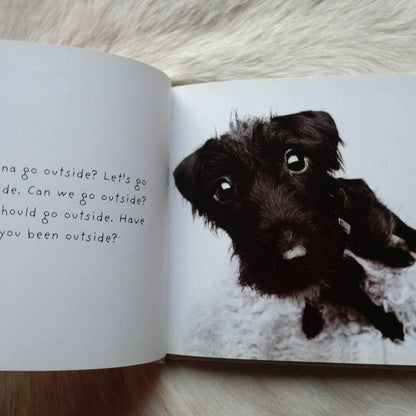 na go outside? Let's go
de. Can we go outside?
hould go outside. Have
you been outside?